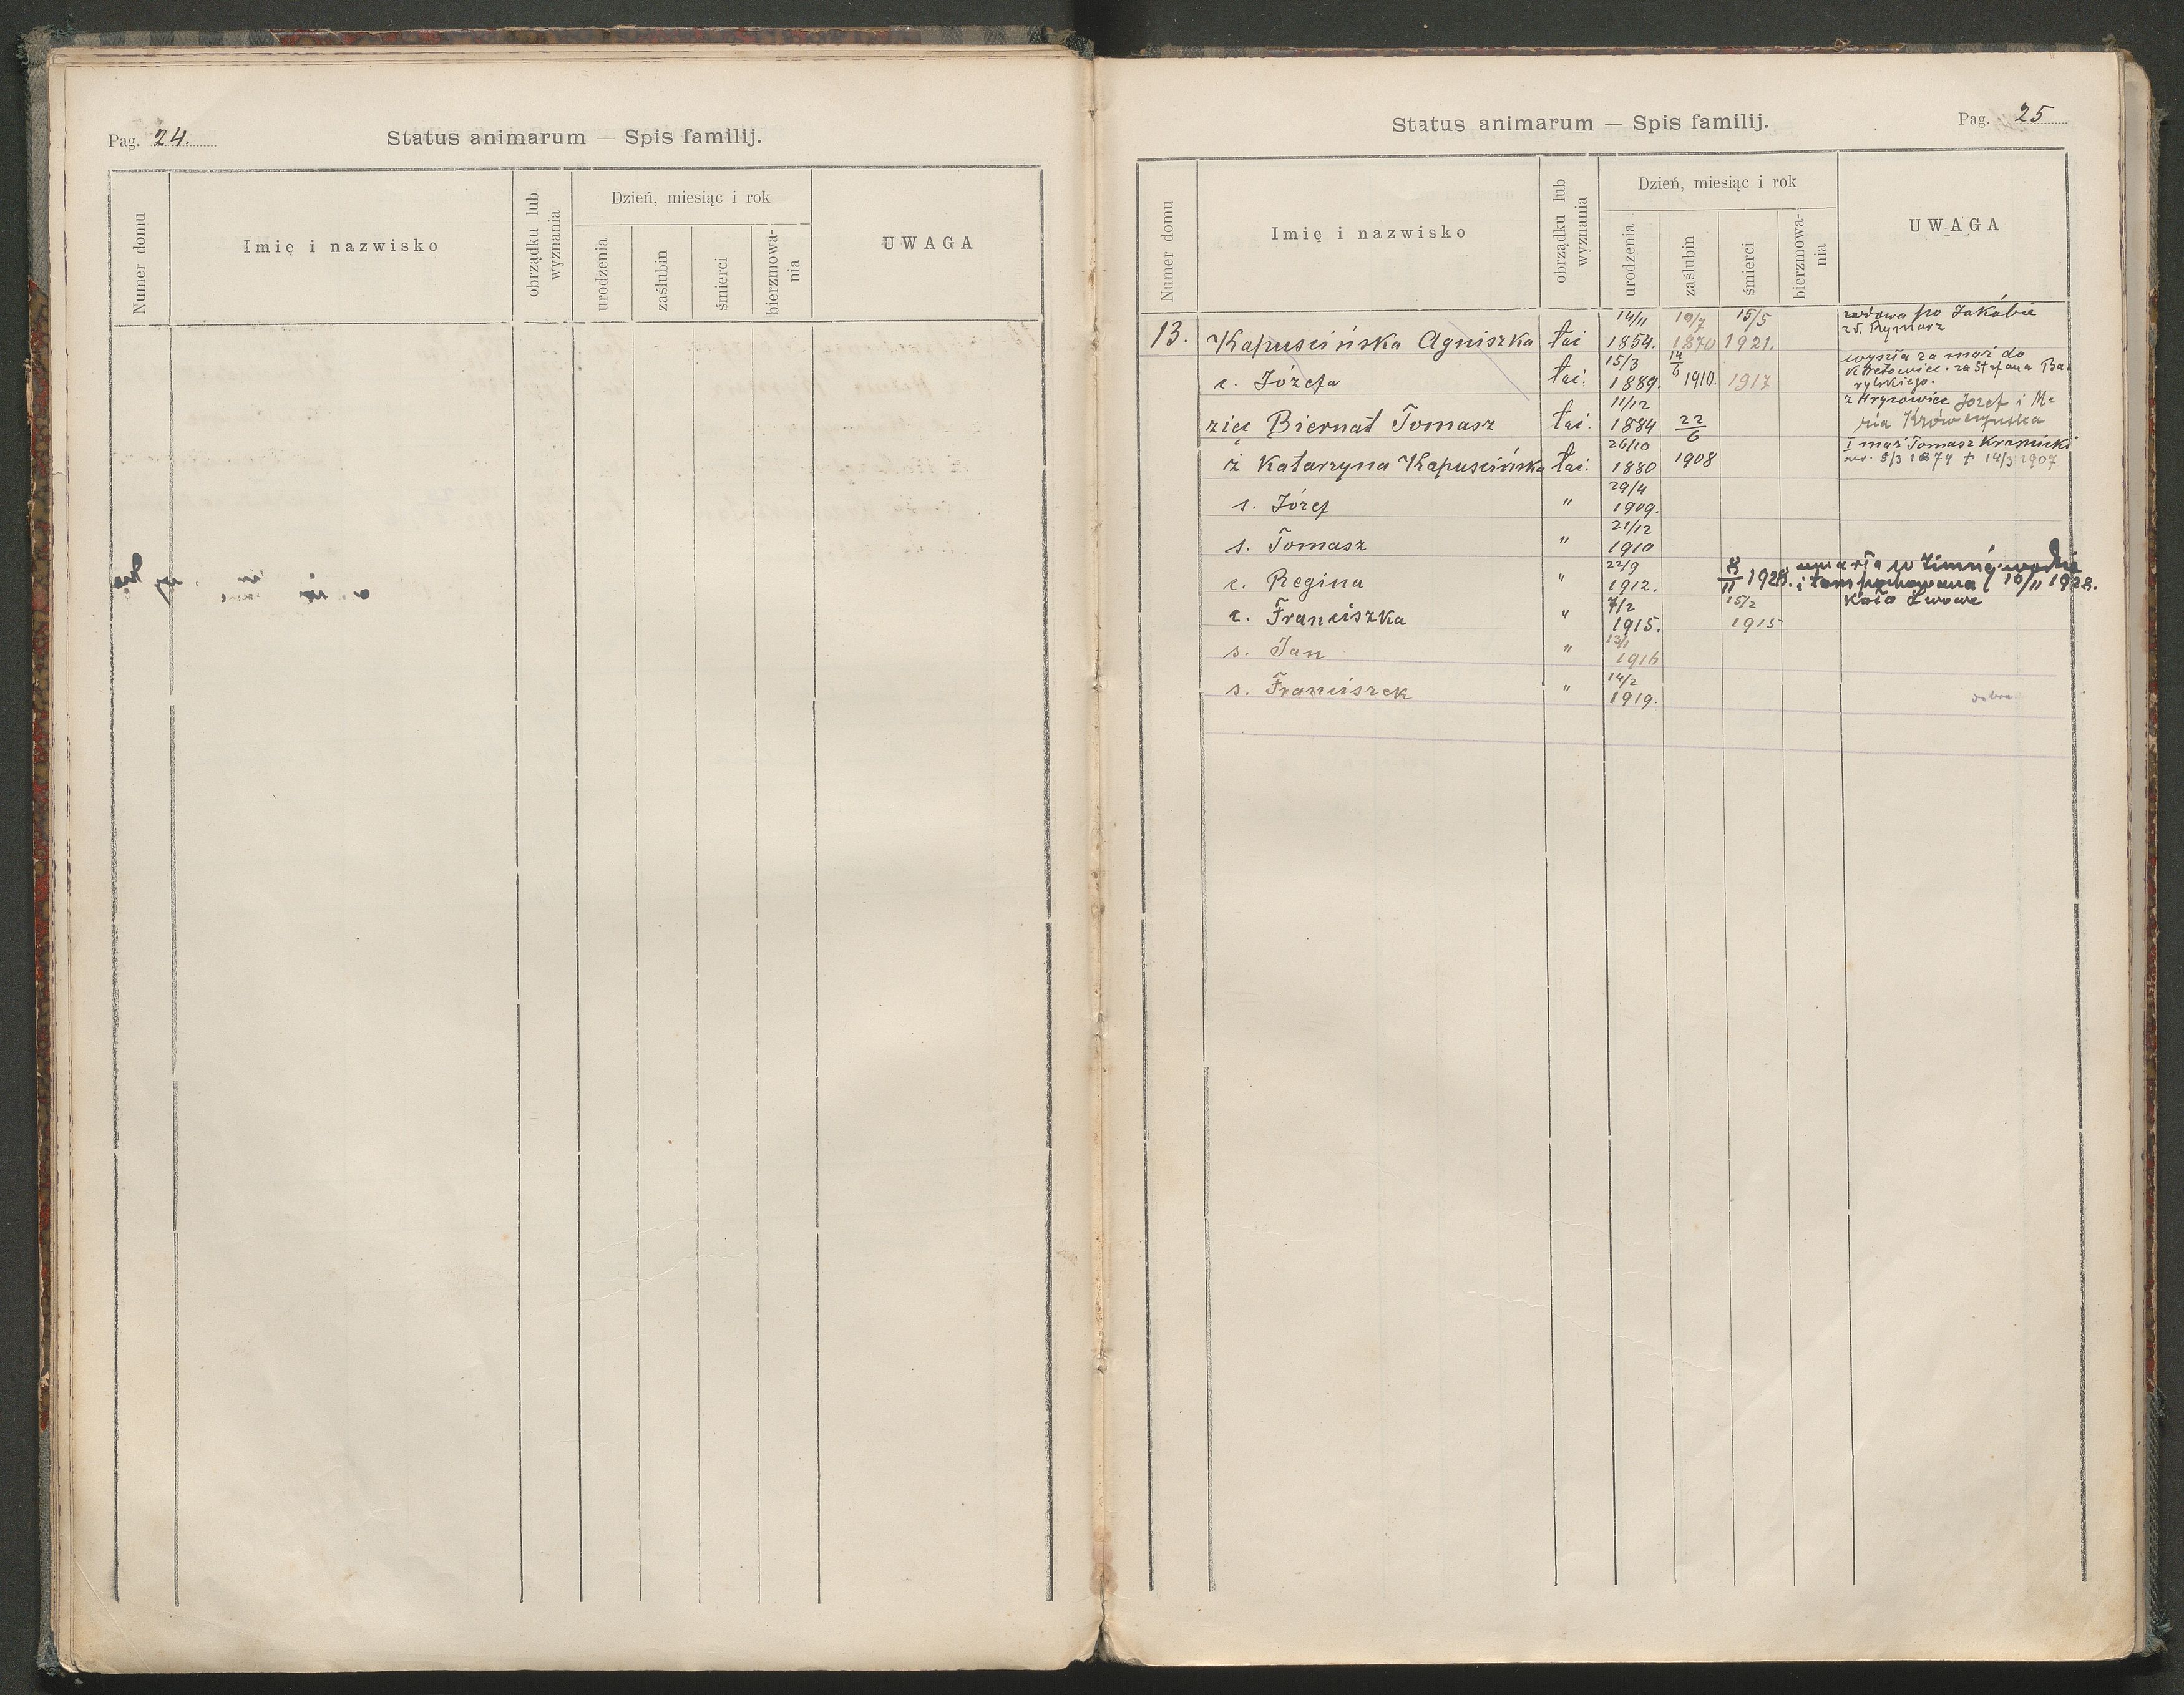 Pag. 24.
Status animarum — Spis familij.
Numer domu
Imię i nazwisko
obrządku lub wyznania
Dzień, miesiąc i rok
urodzenia
zaślubin
śmierci
bierzmowa-
nia
UWAGA
Status animarum — Spis familij.
Pag. 25
Numer domu
Imię i nazwisko
obrządku lub wyznania
Dzień, miesiąc i rok
urodzenia
zaślubin
śmierci
bierzmowa-
nia
UWAGA
14/11 10/7 15/5 wdowa po Jakóbie
13. Kapuscińska Agniszka łac 1854. 1870 1921. zd. Rymarz
15/3 14/6 wyszła za mąż do
c. Józefa łac. 1889. 1910. 1917 za Stefana Ba-
rylskiego.
11/12 z Hrycowiec Jozef i M-
zięć Biernat Tomasz łac. 1884 22/6 ria
26/10 I mąż Tomasz Krasnicki
ż Katarzyna Kapuscińska łac. 1880 1908 5/3 1874 + 14/3 1907
29/4
s. Józef " 1909.
21/12
s. Tomasz " 1910
22/9 8/11 1928. umarła w Zimnej wodzie
c. Regina " 1912. i tam pochowana 10/11 1928.
7/2 15/2 koło Lwowa
c. Franciszka " 1915. 1915
13/1
s. Jan " 1916
14/2
s. Franciszek " 1919.